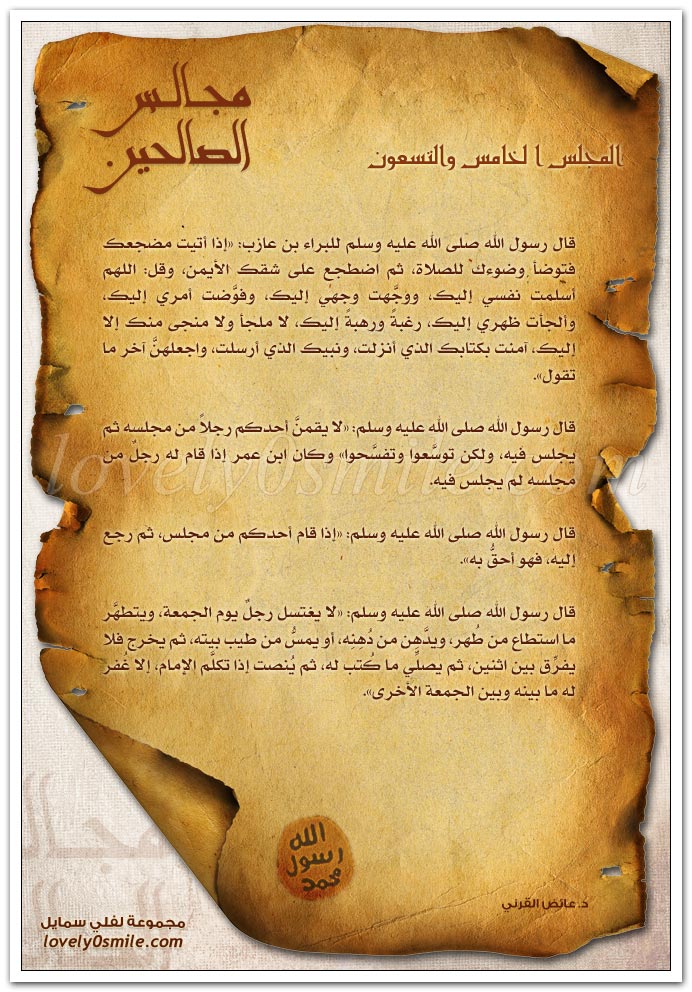 مجالس
الصالحين
المجلس الخامس والتسعون
قال رسول الله صلى الله عليه وسلم للبراء بن عازب: «إذا أتيت مضجعك
فتوضأ وضوءك للصلاة، ثم اضطجع على شقك الأيمن، وقل: اللهم
أسلمت نفسي إليك، ووجَّهت وجهي إليك، وفوَّضت أمري إليك،
وألجأت ظهري إليك، رغبةً ورهبةً إليك، لا ملجأ ولا منجى منك إلا
إليك، آمنت بكتابك الذي أنزلت، ونبيك الذي أرسلت، واجعلهنَّ آخر ما
تقول».
قال رسول الله صلى الله عليه وسلم: «لا يقمنَّ أحدكم رجلاً من مجلسه ثم
يجلس فيه، ولكن توسَّعوا وتفسَّحوا» وكان ابن عمر إذا قام له رجلٌ من
مجلسه لم يجلس فيه.
قال رسول الله صلى الله عليه وسلم: «إذا قام أحدكم من مجلس، ثم رجع
إليه، فهو أحقُّ به».
قال رسول الله صلى الله عليه وسلم: «لا يغتسل رجلٌ يوم الجمعة، ويتطهَّر
ما استطاع من طُهر، ويدَّهِن من دُهنِه، أو يمسُّ من طيب بيته، ثم يخرج فلا
يفرِّق بين اثنين، ثم يصلِّي ما كُتب له، ثم يُنصت إذا تكلَّم الإمام، إلا غُفر
له ما بينه وبين الجمعة الأخرى».
الله
رسول
محمد
د.عائض القرني
مجموعة لفلي سمايل
lovely0smile.com
lovely0smile.com